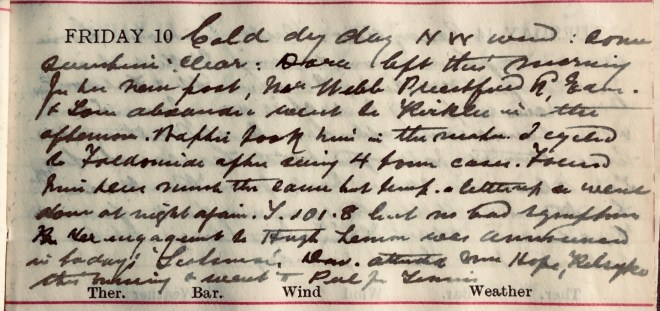 FRIDAY 10 Cold dry day N W wind: some
sunshine: clear: Dora left this morning
for her new post, Mrs Webb Priestfield Rd, Edin.
& Tom went to Kirklee in the
afternoon. took him in the motor. I cycled
to after seeing 4 town cases. Found
him much the same but temp. a little up & went
down at night again. T. 101.8 but no bad symptoms
her engagement to Hugh Lemon was announced
in today's Scotsman. Hope,
this evening & went to Peel for Tennis
Ther. Bar. Wind Weather